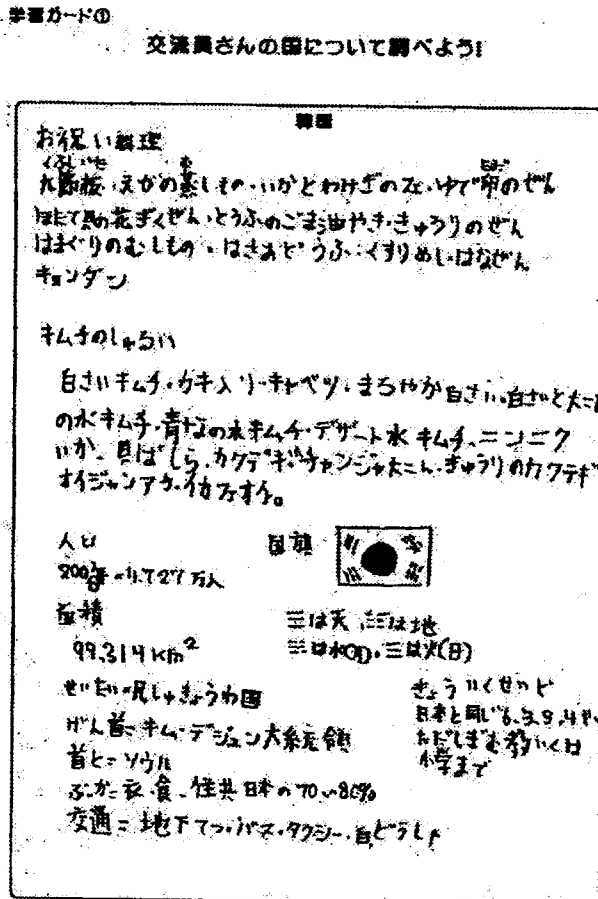 学習カード①
交流員さんの国について調べよう!
韓国
お祝い料理
くぶしいた む
九節板・えびの蒸しもの・いかとわけぎの ゆで のぜん
ほたて貝の花ぎくぜん・とうふのごま油やき・きゅうりのぜん
はまぐりのむしもの・はさみどうふ・くすりめし・はなぜん
キョンダン
キムチのしゅるい
白さいキムチ・カキ入り・キャベツ・まろやか白さい・白さいと大こ
の水キムチ・青なの水キムチ・デザート水キムチ・ニンニク
いか、貝ばしら、カクテギ・チャンジャ大こん・きゅうりのカクテギ
オイジャンアチ・
人口
国旗
2001年 4727万人
面積
99,314km²
☰は天、☷は地
☵は水(月)、☲は火(日)
せいたい=民しゅきょうわ国
げん首=キム・デジュン大統領
首と=ソウル
ぶっか=衣・食・住共日本の70~80%
交通=地下てつ・バス・タクシー・自どうしゃ
きょういくせいど
日本と同じ6、3、3、4
ただしぎむ教いくは
小学まで